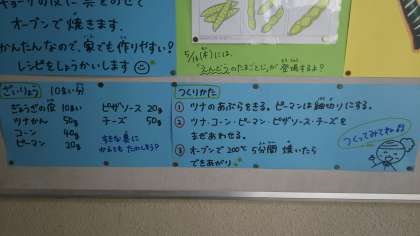 ギョーザの皮に具をのせて
オーブンで焼きます。
かんたんなので、家でも作りやすい?
レシピをしょうかいします
5/16(木)には、
"えんどうのたまごとじ"が登場するよ?
ざいりょう 10まい分
ぎょうざの皮 10まい
ツナかん 50g
コーン 40g
ピーマン 20g
ピザソース 20g
チーズ 50g
すきな具に
かえてもたのしそう?
つくりかた
① ツナのあぶらをきる。ピーマンは細切りにする。
② ツナ・コーン・ピーマン・ピザソース・チーズを
まぜあわせる。
③ オーブンで200℃ 5分間 焼いたら
できあがり
つくってみてね